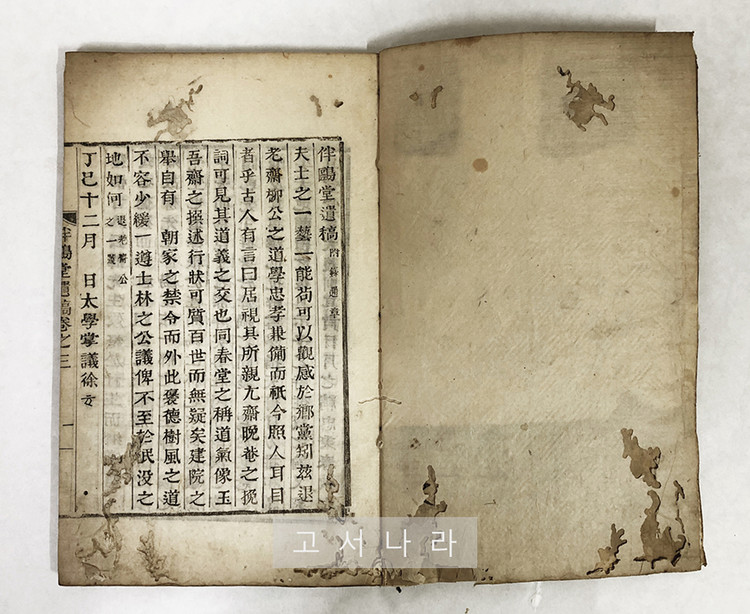 伴鷗堂遺稿 附錄 通章
夫士之一藝一能苟可以觀感於鄕黨矧玆退
老齋柳公之道學忠孝兼備而秖今照人耳目
者乎古人有言曰居視其所親尢齋晚菴之挽
詞可見其道義之交也同春堂之稱道氣像玉
吾齋之撰述行狀可質百世而無疑矣建院之
擧自有 朝家之禁令而外此褒德樹風之道
不容少緩一道士林之公議俾不至於泯没之
地如何 退老齋公之一叢
丁巳十二月 日太學掌議徐
伴鷗堂遺稿卷之三 一
고서나라